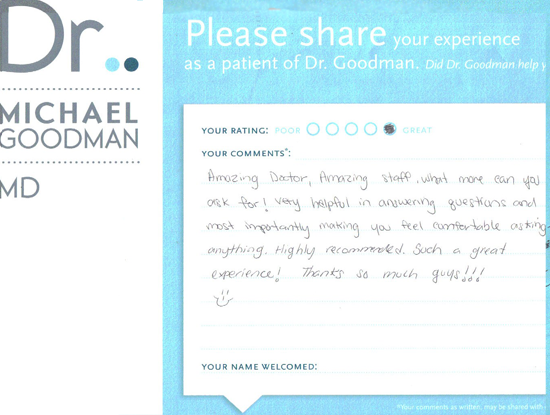 Dr..
MICHAEL
GOODMAN
MD
Please share your experience
as a patient of Dr. Goodman. Did Dr. Goodman help y
YOUR RATING: POOR GREAT
YOUR COMMENTS*:
Amazing Doctor, Amazing staff, what more can you
ask for! Very helpful in answering questions and
most importantly making you feel comfortable asking
anything. Highly recommended. Such a great
experience! Thanks so much guys!!!
YOUR NAME WELCOMED:
*Your comments as written, may be shared with